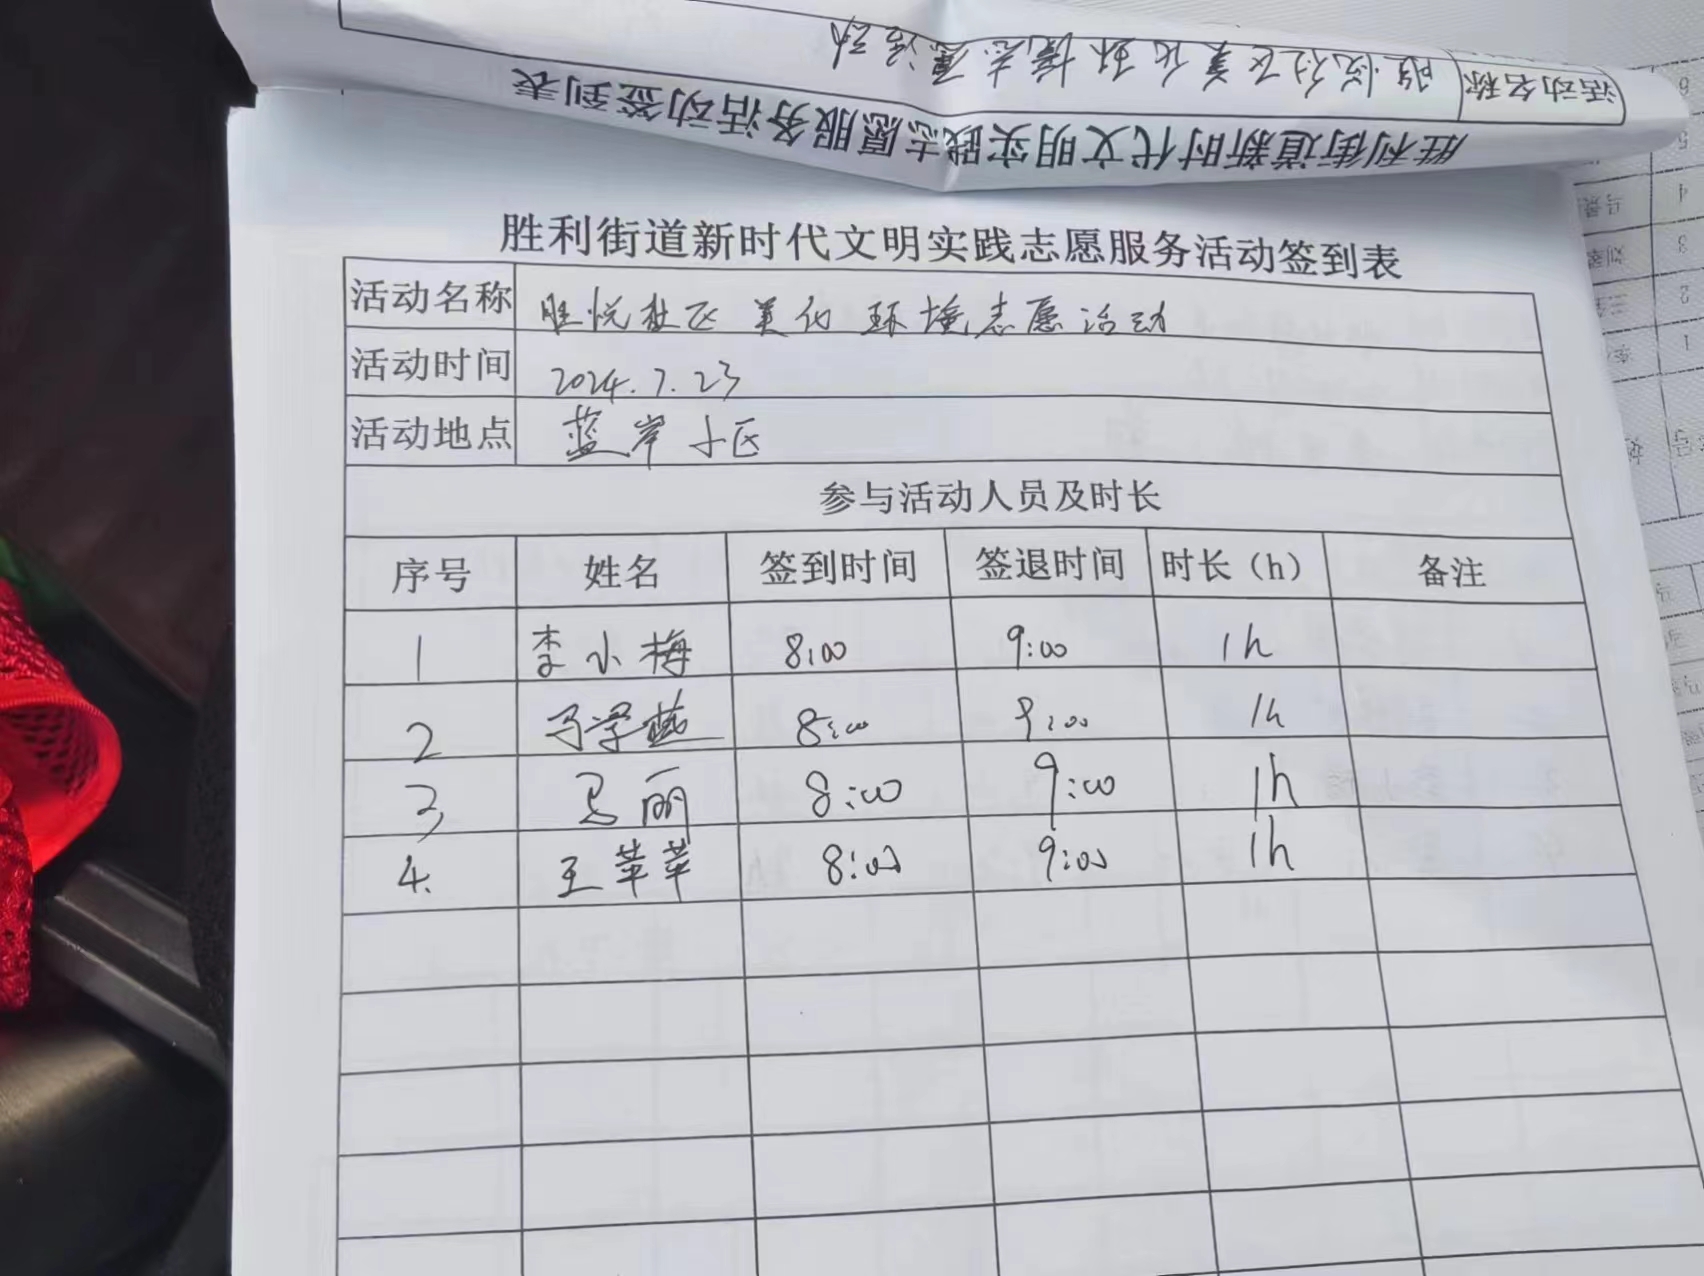 活动名称 胜悦社区美化环境志愿活动
胜利街道新时代文明实践志愿服务活动签到表
胜利街道新时代文明实践志愿服务活动签到表
活动名称 胜悦社区美化环境志愿活动
活动时间 2024.7.23
活动地点 蓝岸小区
参与活动人员及时长
序号 姓名 签到时间 签退时间 时长（h） 备注
1 李小梅 8:00 9:00 1h
2 学燕 8:00 9:00 1h
3 马丽 8:00 9:00 1h
4. 王苹苹 8:00 9:00 1h
6
5
4
3
2
1